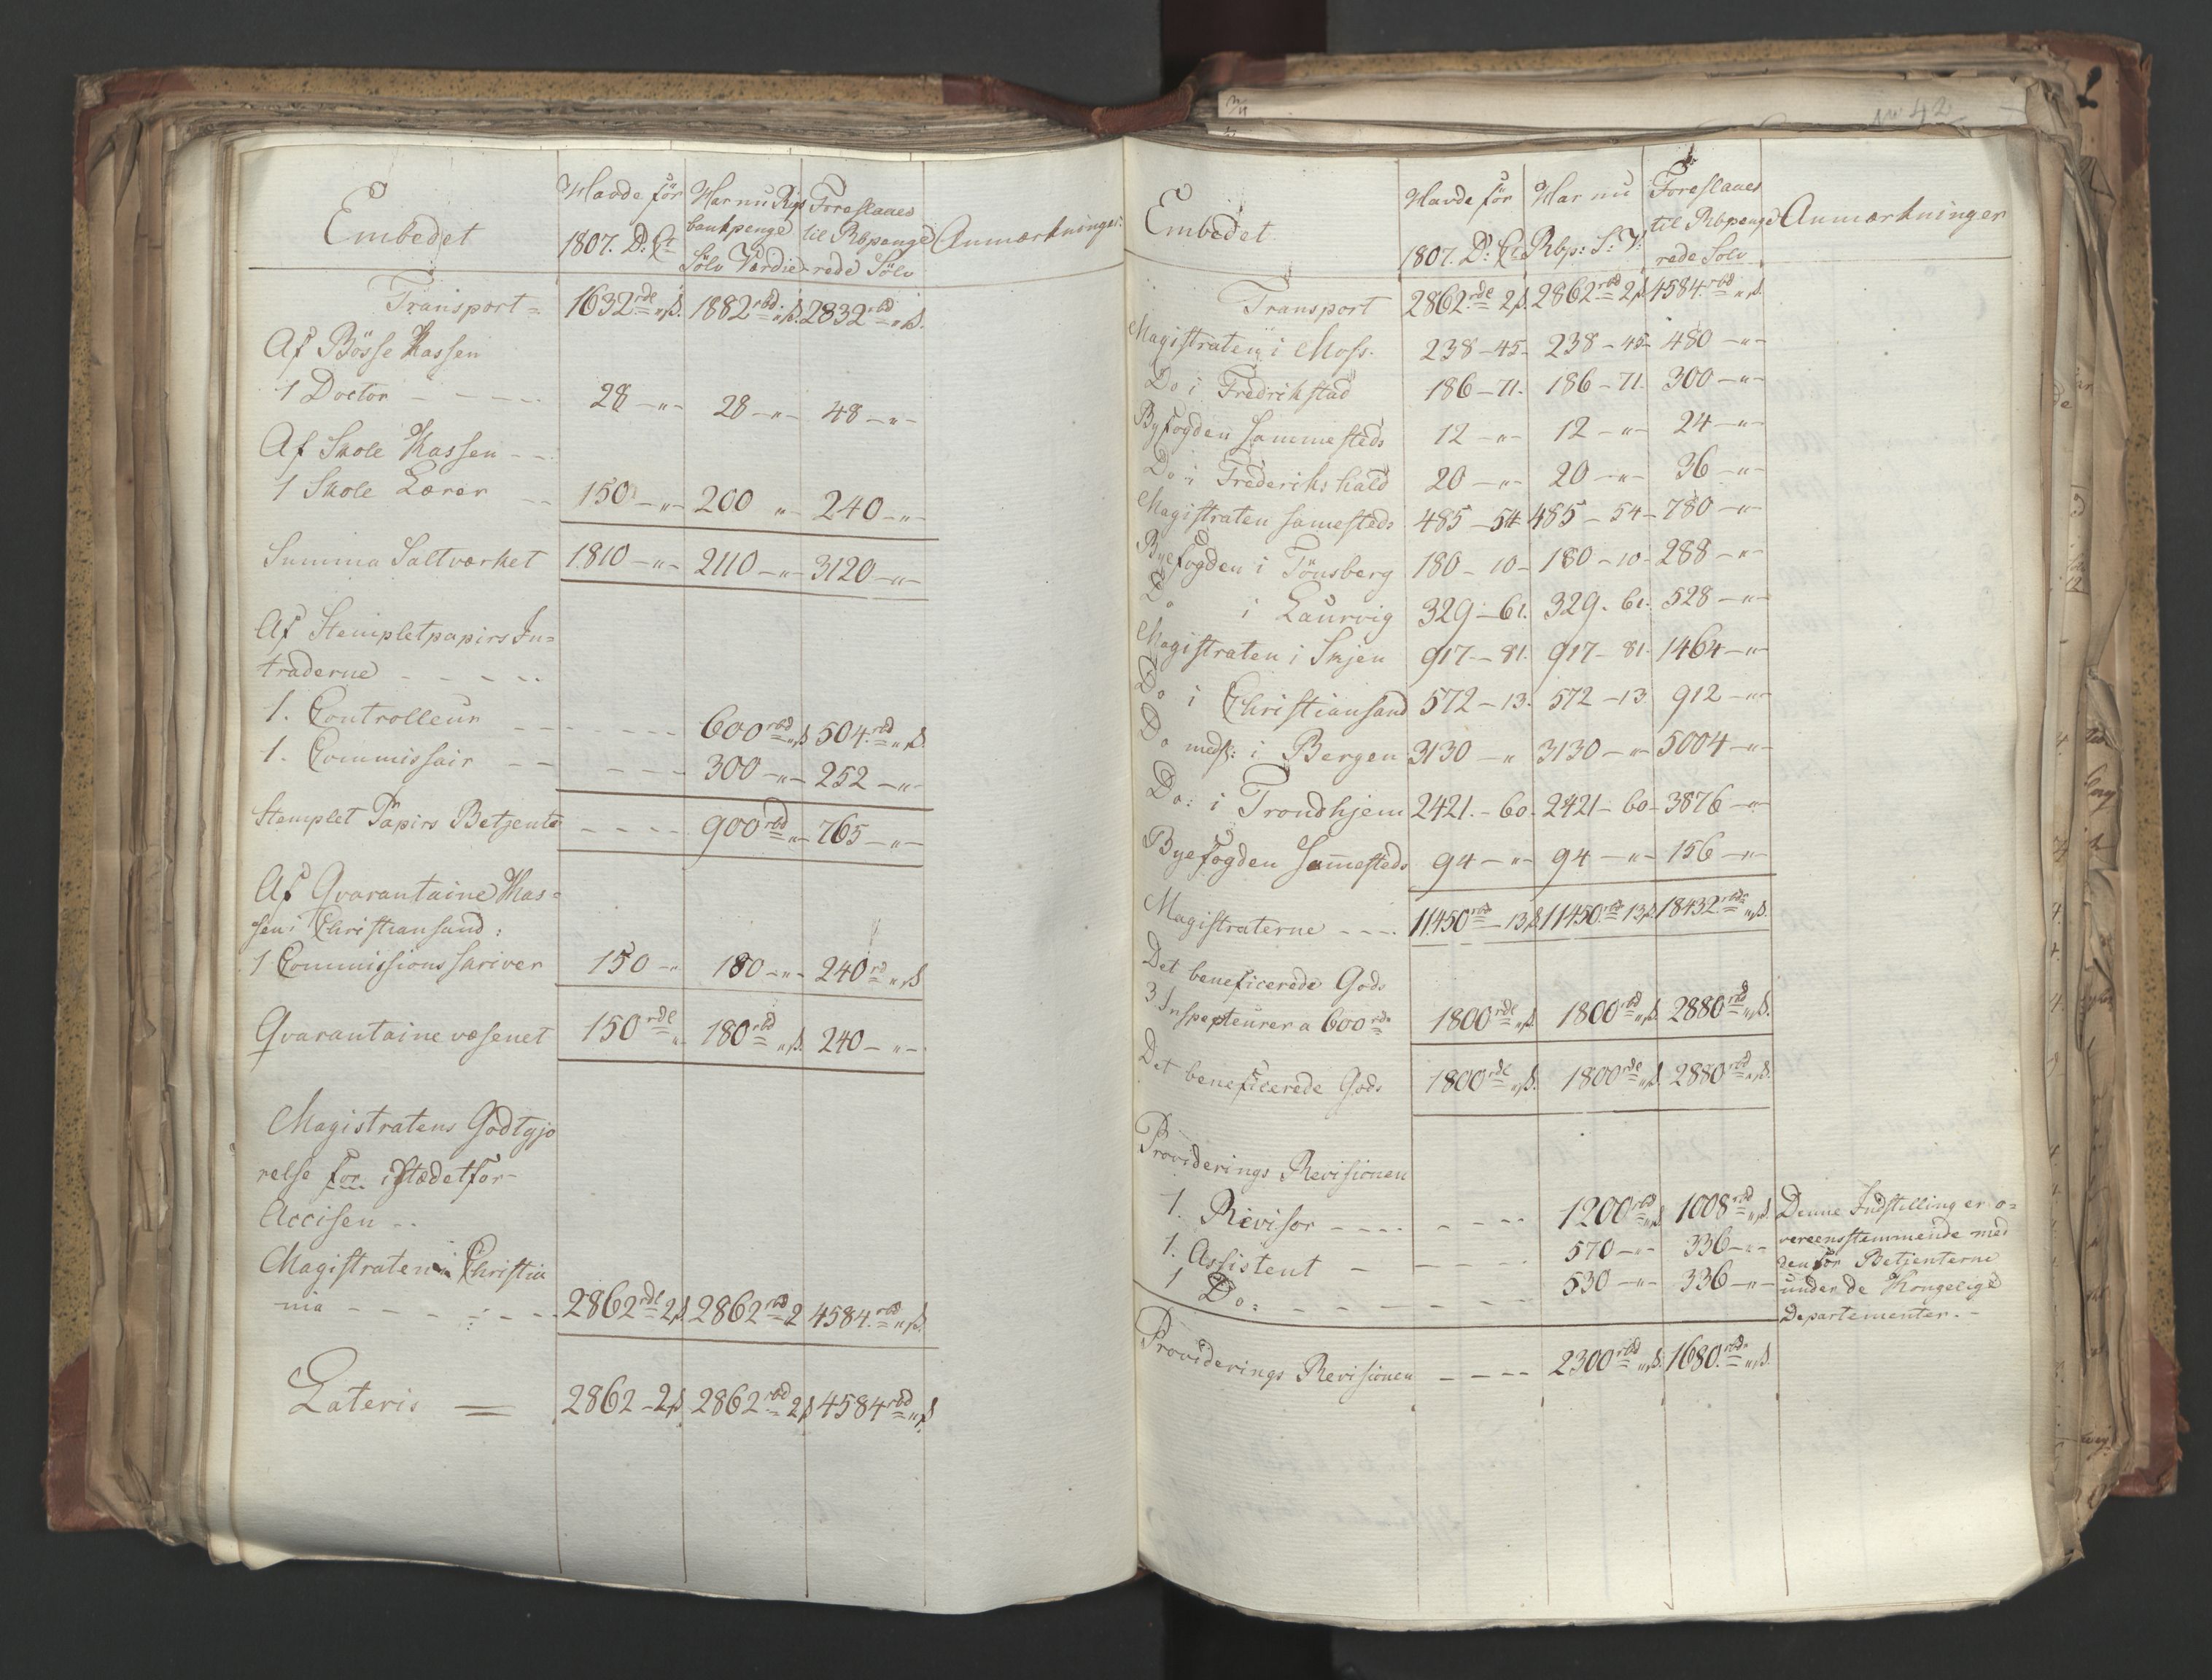 Embedet | Havde för 1807. D: Ct | Har nu Rigsbankpenge Sölv Værdie | Foreslaaes til Rbpenge rede Sölv | Anmærkninger.
Transport = 1632 rdl „ ß. 1882 rbd „ ß. 2832 rbd „ ß.
Af Bösse Kassen
1 Doctor - - - - 28 - „ - 28 - „ - 48 - „ -
Af Skole Kassen - -
1 Skole Lærer - - 150 - „ - 200 „ - 240 - „ -
Summa Saltværket 1810 - „ - 2110 - „ - 3120 - „ -
Af Stempletpapirs In=
traderne - - - - -
1. Controlleur - - - - - 600 rbd „ ß 504. rbd „ ß.
1. Commissair - - - - - 300 - „ - 252 - „ -
Stemplet Papirs Betjente - - - - 900 rbd „ - 765 - „ -
Af Qvarantaine Kas=
sen i Christiansand:
1 Commissionsskriver 150 - „ 180 - „ - 240 rd „ ß
Qvarantaine væsenet 150 rdl „ - 180 rbd „ ß. 240 - „ -
Magistratens Godtgjö
relse for istædetfor
Accisen - -
Magistraten i Christia
nia - - - - - - 2862 rdl 2 ß. 2862 rbd 2 4584. rbd „ ß.
Lateris = 2862 - 2 ß. 2862 rbd 2 ß 4584 rbd „ ß
No 42
Embedet | Havde för 1807. D: Ct | Har nu Rbp: S: V: | Foreslaaes til Rbpenge rede Sölv | Anmærkninger
Transport 2862. rdl 2 ß. 2862. rbd 2 ß 4584. rbd „ ß.
Magistraten i Moss. 238 - 45 - 238 - 45 - 480 - „ -
Do i Fredrikstad 186 - 71. 186 - 71. 300 - „ -
Byfogden sammesteds 12 - „ - 12 - „ - 24 - „ -
Do i Frederikshald 20 - „ - 20 - „ - 36 - „ -
Magistraten samesteds 485 - 54 485 - 54 - 780 - „ -
Byefogden i Tönsberg 180 - 10 - 180 - 10 - 288 - „ -
Do i Laurvig 329 - 61. 329. 61. 528 - „ -
Magistraten i Skjen 917 - 81. 917 - 81. 1464 - „ -
Do i Christiansand 572 - 13. 572 - 13 912 - „ -
Do medß: i Bergen 3130 - „ 3130 - „ - 5004 - „ -
Do: i Trondhjem 2421. - 60. 2421 - 60 - 3876 - „ -
Byefogden Samesteds 94 - „ - 94 - „ - 156 - „ -
Magistraterne - - - - 11450 rbd - 13 ß 11450. rbd 13 ß 18432. rbd „ ß.
Det beneficerede Gods
3 Inspecteurer a 600 rd 1800 rdl „ ß. 1800 rbd „ ß. 2880 rbd „ ß.
Det beneficerede Gods 1800 rdl „ ß. 1800 rdl „ ß. 2880 rbd „ ß.
Provideerings Revisionen
1. Revisor - - - - - - - - 1200 rbd „ ß 1008 rbd „ ß. Denne Indstilling er o=
1. Assistent - - - - - 570 - „ - 336 - „ - vereensstemmende med
den for Betjenterne
1 Do: - - - - - - - - 530 - „ - 336 - „ - under de Kongelige
Departementer. -
Provideerings Revisionen - - - - 2300 rbd „ ß. 1680. rbd „ ß.